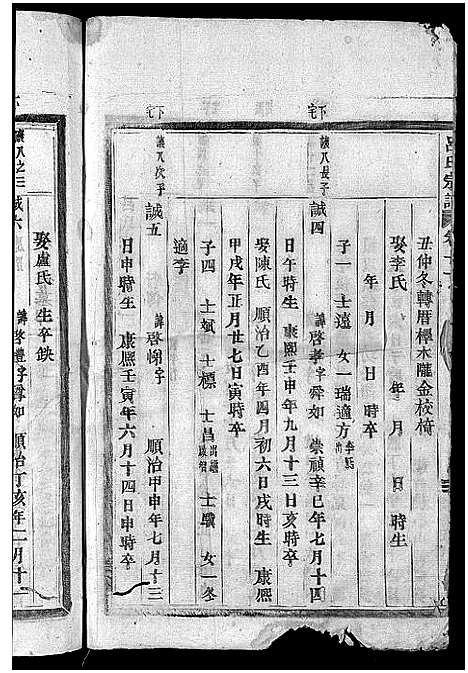 呂氏宗譜
丑仲冬轉厝櫸木隴金校椅
娶李氏 年 月 日 時生
年 月 日 時卒
子一士遠 女一瑞適方
下宅
議八長子
誠四 諱啓孝字舜如 崇禎辛巳年七月十四
日午時生 康熙壬申年九月十三日亥時卒
娶陳氏 順治乙酉年四月初六日戌時生 康熙
甲戌年正月廿七日寅時卒
子四 士斌 士標 士昌 士驥 女一冬
適李
下宅
議八次子
誠五 諱啓悌字 順治甲申年七月十三
日申時生 康熙壬寅年六月十四日申時卒
娶盧氏 生卒缺
議八之三
誠六 諱啓禮字舜如 順治丁亥年二月十